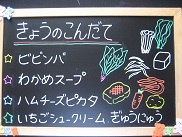 きょうのこんだて
☆ビビンバ
☆わかめスープ
☆ハムチーズピカタ
☆いちごシュークリーム、ぎゅうにゅう